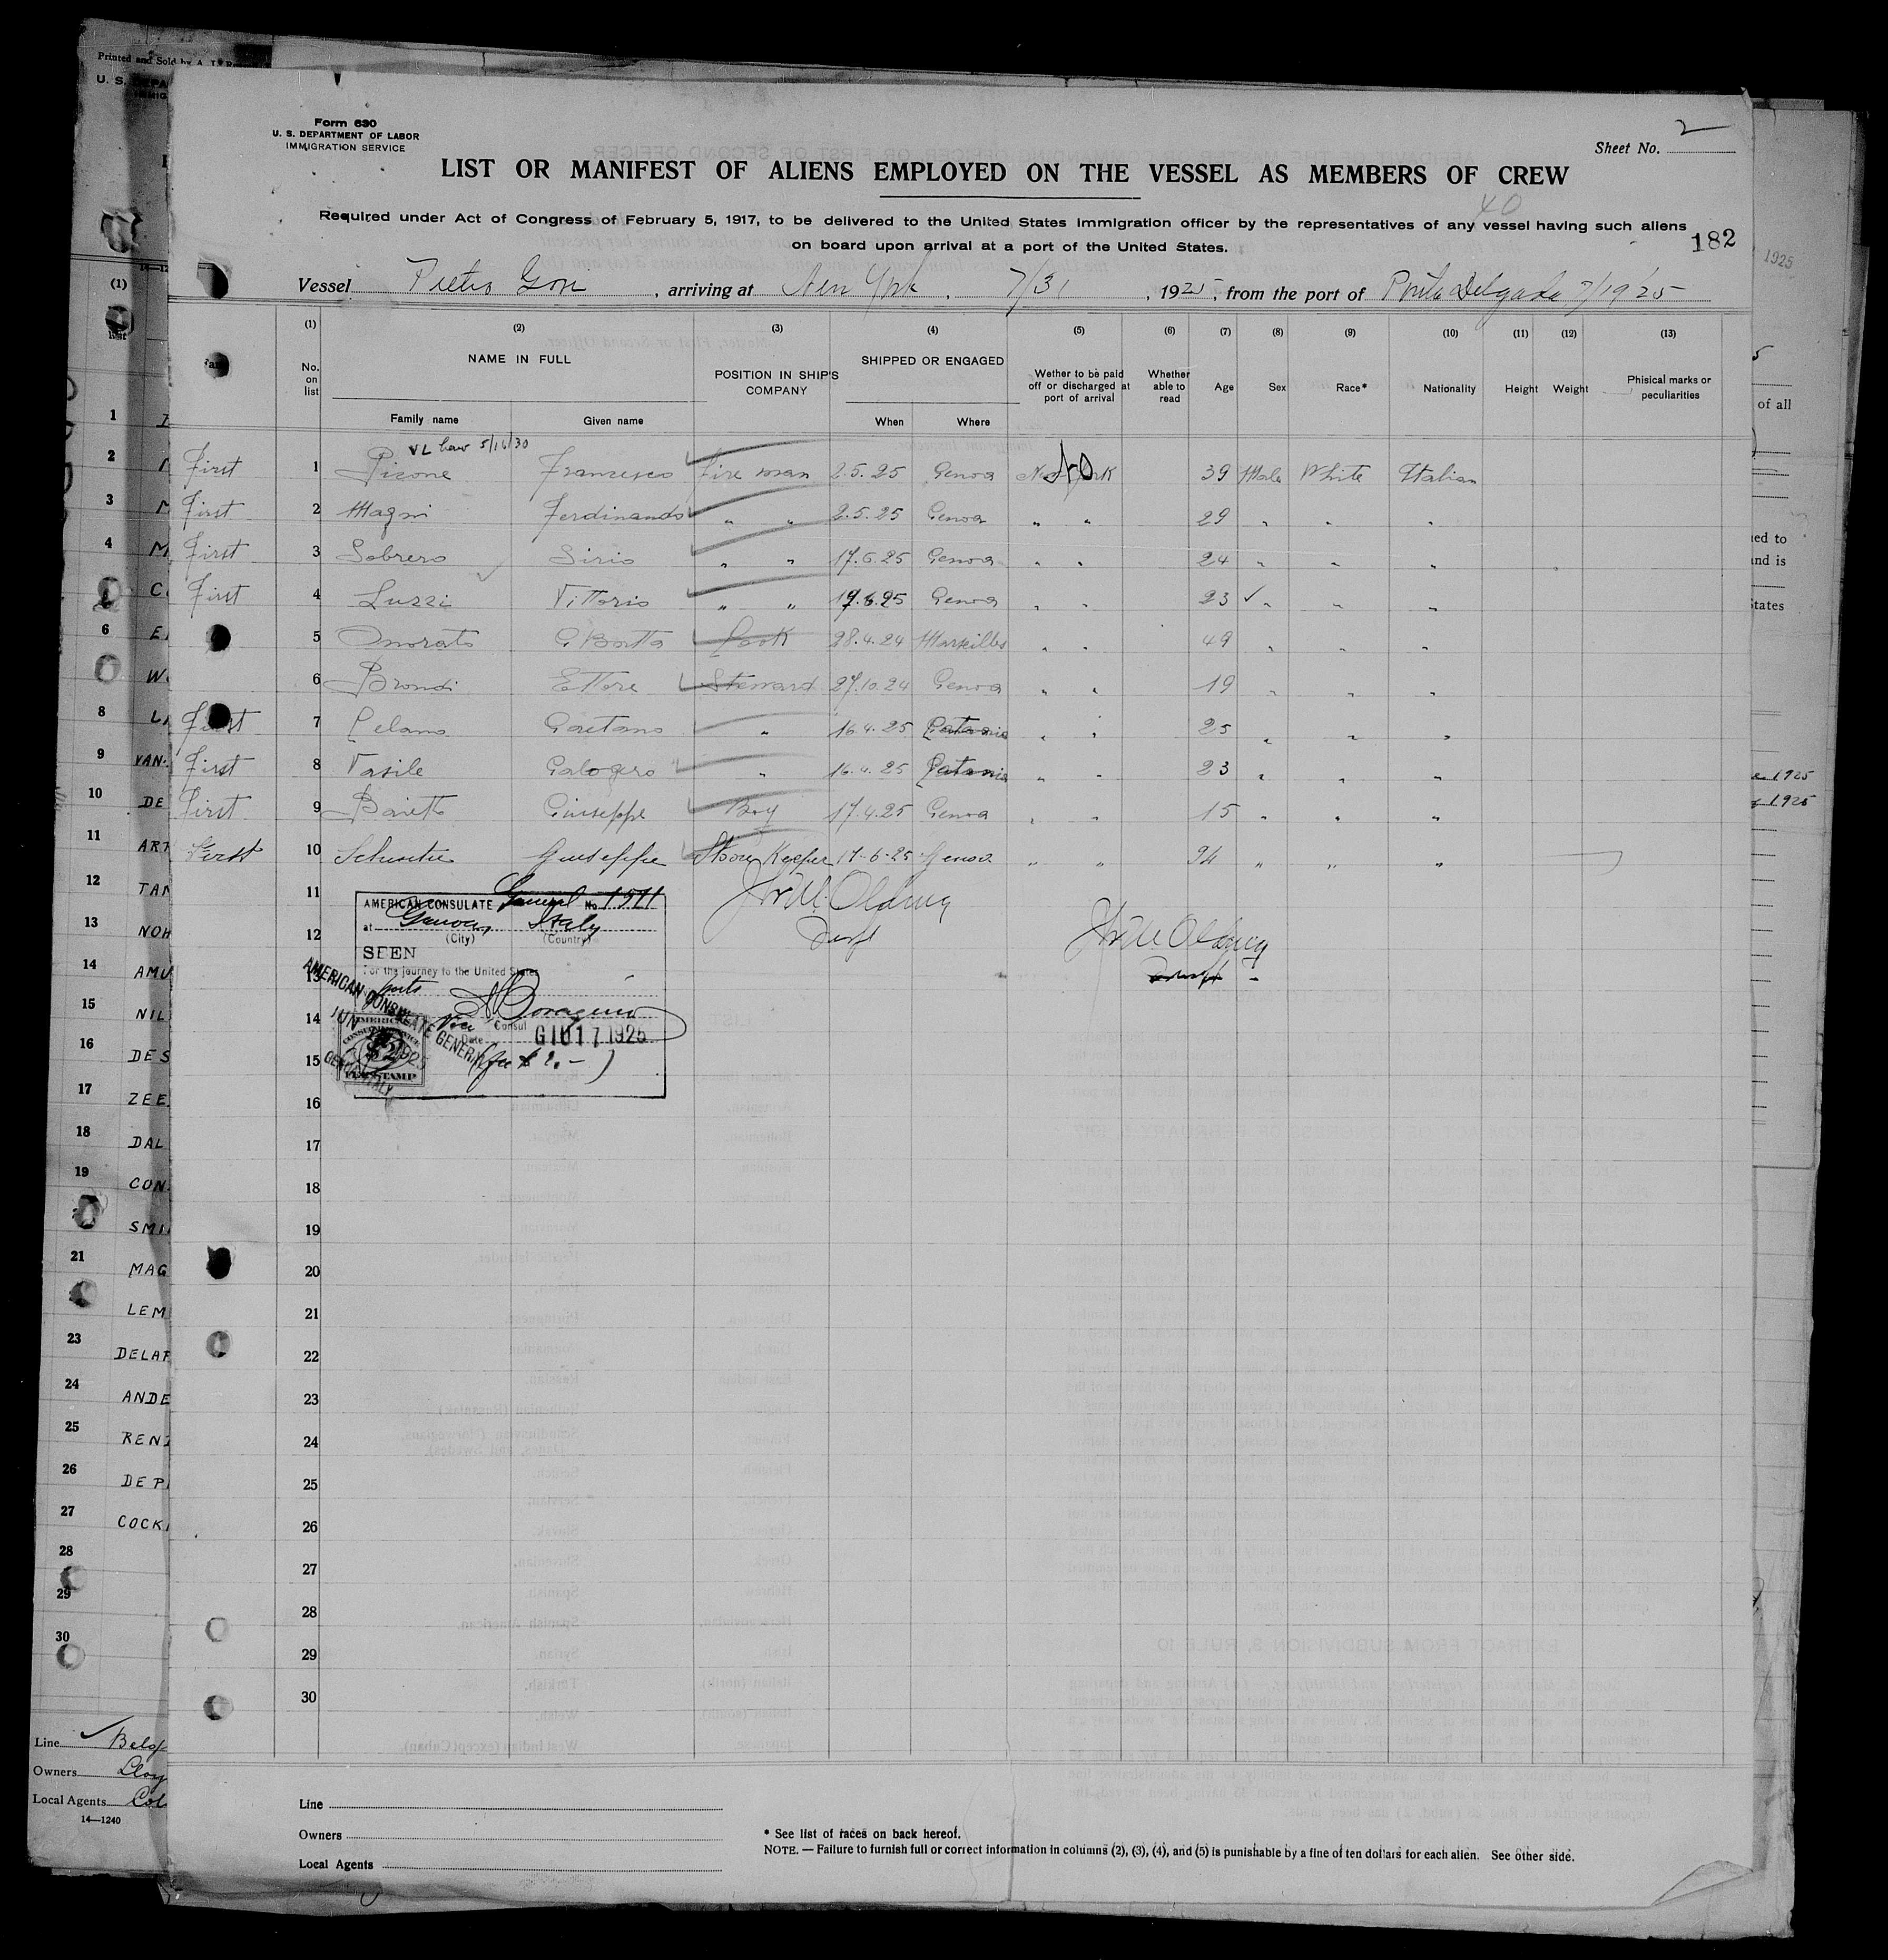 Printed and Sold by A. J.
U. S. DEPA
Form 680
U. S. DEPARTMENT OF LABOR
IMMIGRATION SERVICE
Sheet No. 2
LIST OR MANIFEST OF ALIENS EMPLOYED ON THE VESSEL AS MEMBERS OF CREW
40
Required under Act of Congress of February 5, 1917, to be delivered to the United States Immigration officer by the representatives of any vessel having such aliens
on board upon arrival at a port of the United States.
182
1925
Vessel Pietro Gori, arriving at New York, 7/31, 1925, from the port of Ponta Delgada 7/19/25
(1) (2) (3) (4) (5) (6) (7) (8) (9) (10) (11) (12) (13)
No. on list NAME IN FULL POSITION IN SHIP'S COMPANY SHIPPED OR ENGAGED Wether to be paid off or discharged at port of arrival Whether able to read Age Sex Race* Nationality Height Weight Phisical marks or peculiarities
Family name Given name When Where
VL 5/16/30
First 1 Picone Francesco fire man 2.5.25 Genoa New York No 39 Male White Italian
First 2 Magni Ferdinando " " 2.5.25 Genoa " " 29 " " "
First 3 Sobrero Sirio " " 17.6.25 Genoa " " 24 " " "
First 4 Luzzi Vittorio " " 17.6.25 Genoa " " 23 " " "
5 Onorato G Batta Cook 28.4.24 Marseilles " " 49 " " "
6 Brondi Ettore Steward 27.10.24 Genoa " " 19 " " "
First 7 Celano Gaetano " 16.4.25 Catania " " 25 " " "
First 8 Vasile Calogero " 16.4.25 Catania " " 23 " " "
First 9 Giuseppe Boy 17.4.25 Genoa " " 15 " " "
First 10 Giuseppe Store Keeper 17-6-25 Genoa " " 24 " " "
11
12
13
14
15
16
17
18
19
20
21
22
23
24
25
26
27
28
29
30
AMERICAN CONSULATE General No. 1511
at Genoa, Italy
(City) (Country)
SEEN
For the journey to the United States
ports
Vice Consul
Date GIU 17 1925
(fee $ 2.-)
AMERICAN CONSULATE GENERAL
JUN 1925
GENOA ITALY
AMERICAN
CONSULAR SERVICE
$2
FEE STAMP
Line
Owners
Local Agents
* See list of races on back hereof.
NOTE. — Failure to furnish full or correct information in columns (2), (3), (4), and (5) is punishable by a fine of ten dollars for each alien. See other side.
(1)
1
2
3
4
6
8
9 VAN
10 DE
11 ART
12 TAN
13 NOH
14 AMU
15 NIL
16 DES
17 ZEE
18 DAL
19 CON
SMI
21 MAG
LEM
23 DELAF
24 ANDE
25 REN
26 DE P
27 COCK
28
29
30
Line Belg
Owners Lloy
Local Agents Col
14—1240
of all
ed to
nd is
States
1925
1925